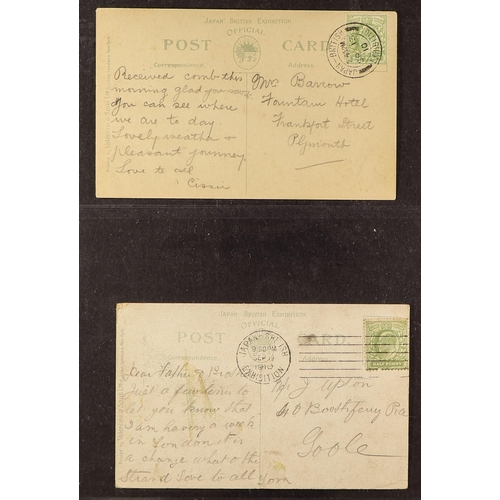 JAPAN BRITISH EXHIBITION
OFFICIAL
POST CARD
Correspondence. Address.
Received comb this
morning glad you
You can see where
we are to day.
Lovely weather &
pleasant journey
Love to all
Cissie
Mrs Barrow
Fountain Hotel
Frankfort Street
Plymouth
JAPAN-BRITISH
JAPAN BRITISH EXHIBITION
OFFICIAL
POST CARD
Correspondence.
JAPAN-BRITISH
EXHIBITION
1910
Dear Father &
Just a few lines to
let you know that
I am having a week
in London it is
a change what o the
Strand Love to all Tom
J. Upton
40
Goole